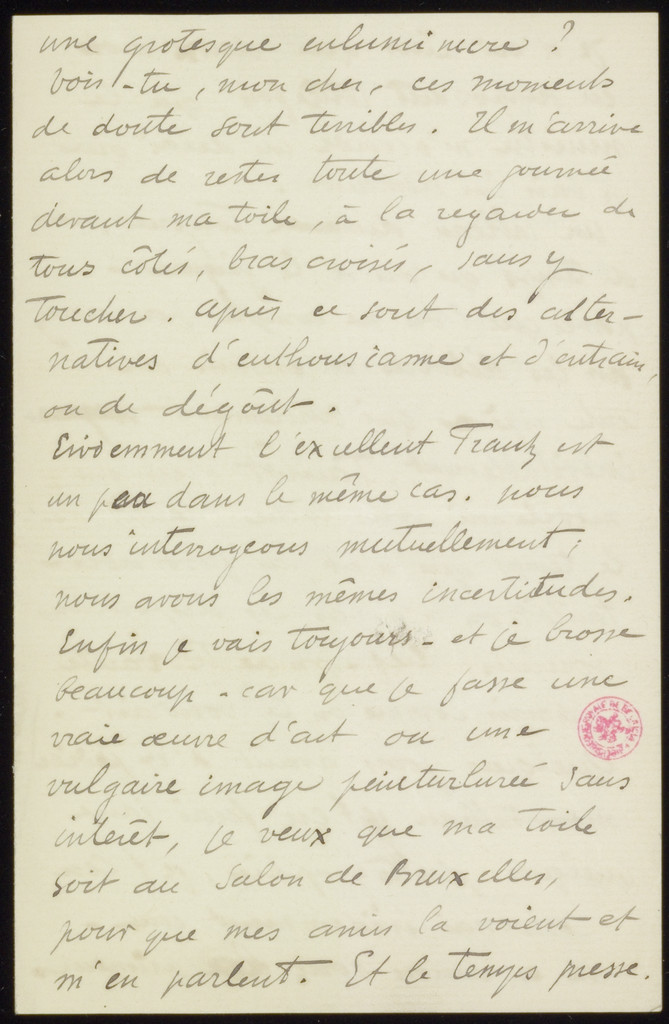 une grotesque enluminure ?
Vois-tu, mon cher, ces moments
de doute sont terribles. Il m'arrive
alors de rester toute une journée
devant ma toile, à la regarder de
tous côtés, bras croisés, sans y
toucher. Après ce sont des alter-
natives d'enthousiasme et d'entrain,
ou de dégoût.
Evidemment l'excellent Frantz est
un peu dans le même cas. nous
nous interrogeons mutuellement ;
nous avons les mêmes incertitudes.
Enfin je vais toujours - et je brosse
beaucoup - car que je fasse une
vraie œuvre d'art ou une
vulgaire image peinturlurée sans
intérêt, je veux que ma toile
soit au Salon de Bruxelles,
pour que mes amis la voient et
m'en parlent. Et le temps presse.